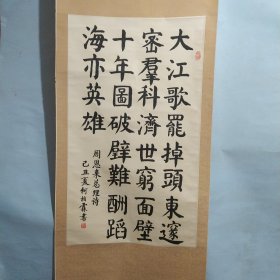 大江歌罷掉頭東邃
密羣科濟世窮面壁
十年圖破壁難酬蹈
海亦英雄
周恩來总理詩
己丑夏柯柏霖書